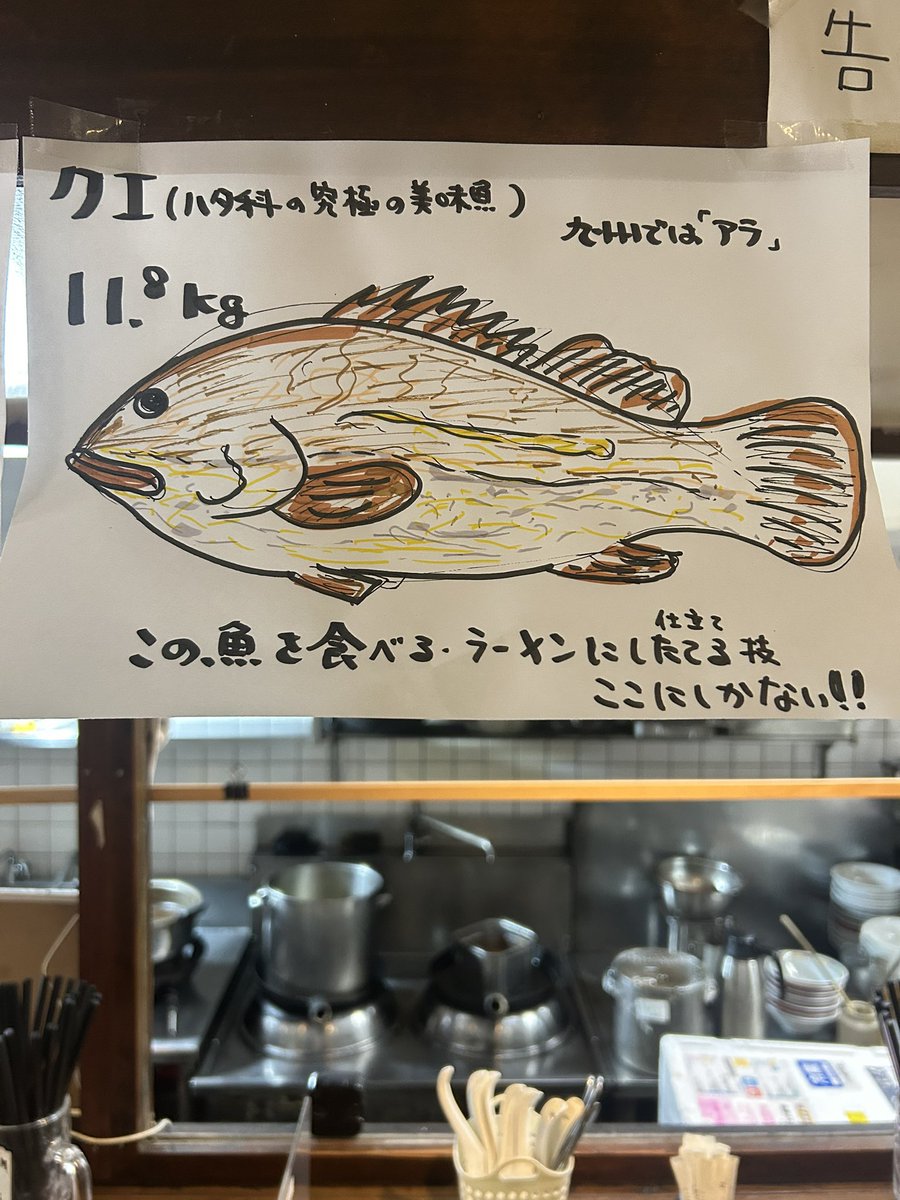 告
クエ(ハタ科の究極の美味魚)
九州では「アラ」
11.8kg
仕立て
この魚を食べる・ラーメンにしたてる技
ここにしかない!!